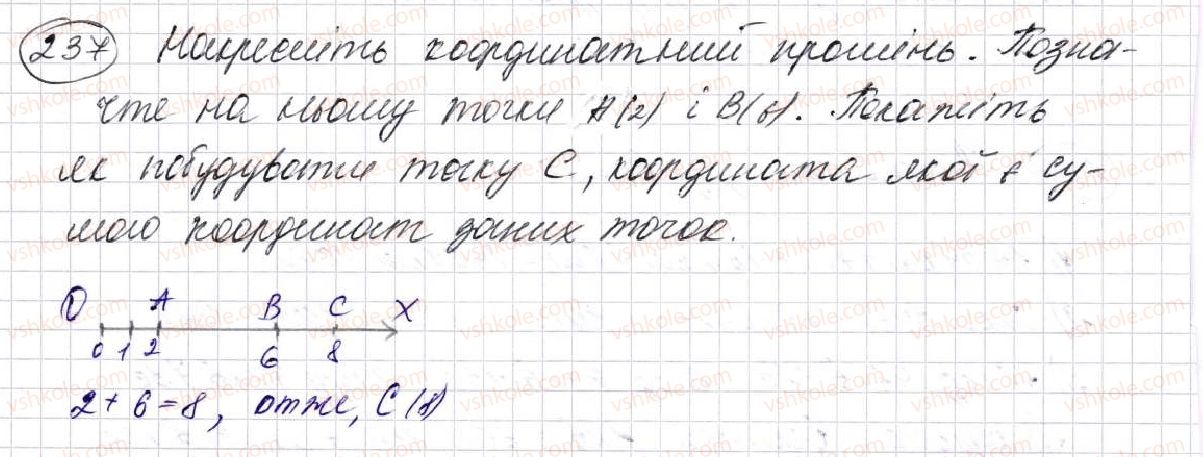 237 Накресліть координатний промінь. Позна-
чте на ньому точки A(2) і B(6). Покажіть
як побудувати точку C, координата якої є су-
мою координат даних точок.
O A B C X
0 1 2 6 8
2 + 6 = 8, отже, C(8)